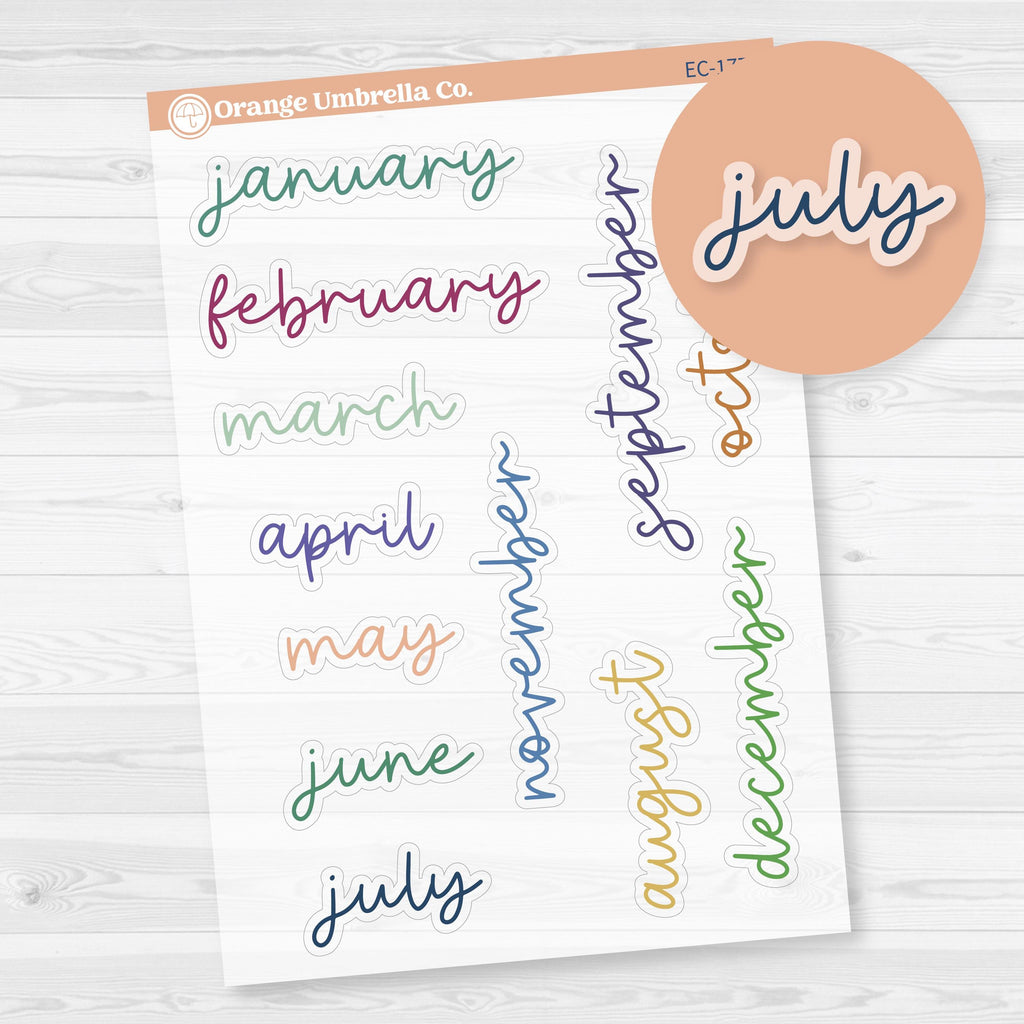 Orange Umbrella Co.
EC-17
january
february
march
april
may
june
july
november
september
octo
august
december
july